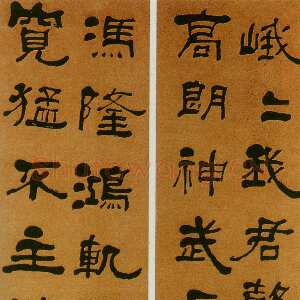 峨〻我君
高朗神武
馮隆鴻軌
寬猛不主